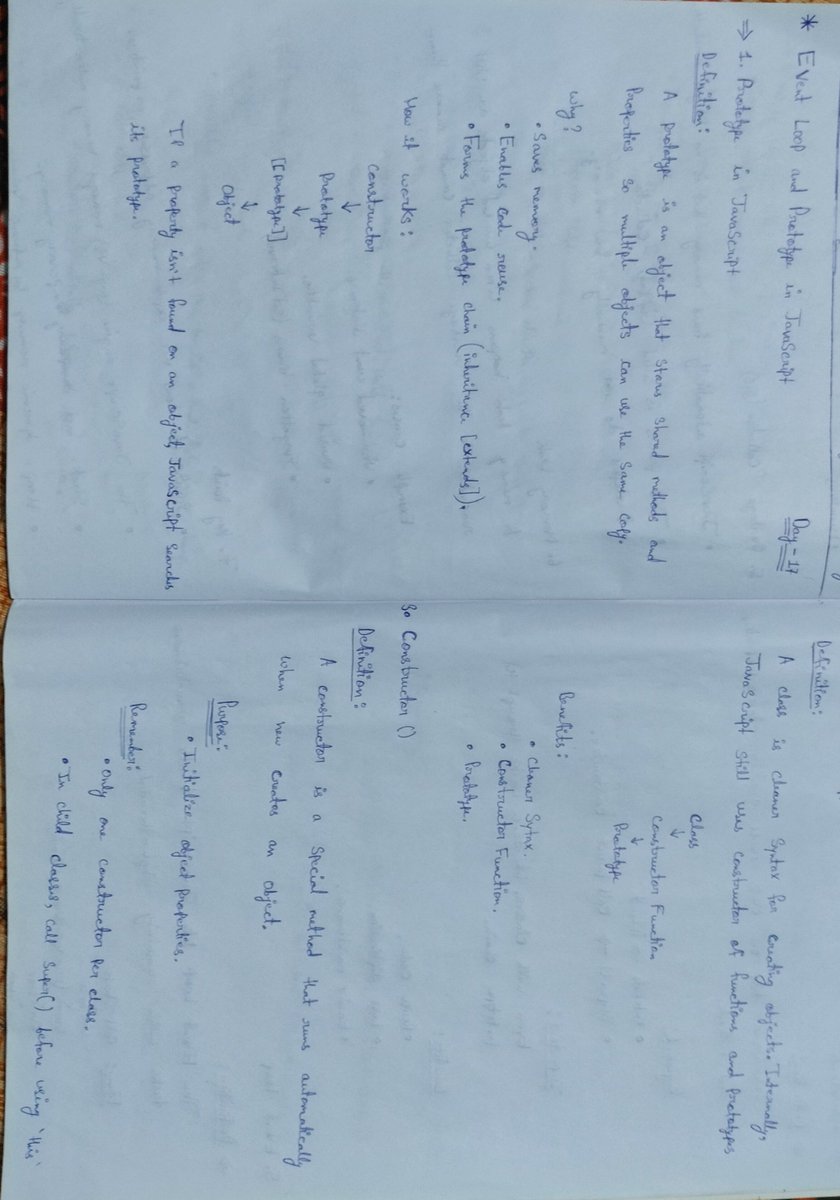 * Event Loop and Prototype in JavaScript
Day - 17
⇒ 1. Prototype in JavaScript
Definition:
A prototype is an object that stores shared methods and
properties so multiple objects can use the same copy.
Why?
• Saves memory.
• Enables code reuse.
• Forms the prototype chain (inheritance [extends]).
How it works:
Constructor
↓
Prototype
↓
[[Prototype]]
↓
Object
If a property isn't found on an object, JavaScript searches
its prototype.
Definition:
A class is cleaner syntax for creating objects. Internally,
JavaScript still uses constructor of functions and prototypes
Class
↓
Constructor Function
↓
Prototype
Benefits:
• Cleaner Sytax.
• Constructor Function.
• Prototype.
3. Constructor ()
Definition:
A constructor is a special method that runs automatically
when new creates an object.
Purpose:
• Initialize object properties.
Remember:
• Only one constructor per class.
• In child classes, call super() before using 'this'